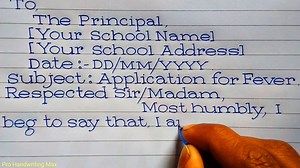 To,
The Principal,
[Your School Name]
[Your School Address]
Date:-DD/MM/YYYY
subject: Application for Fever.
Respected Sir/Madam,
Most humbly, I
beg to say that, I a